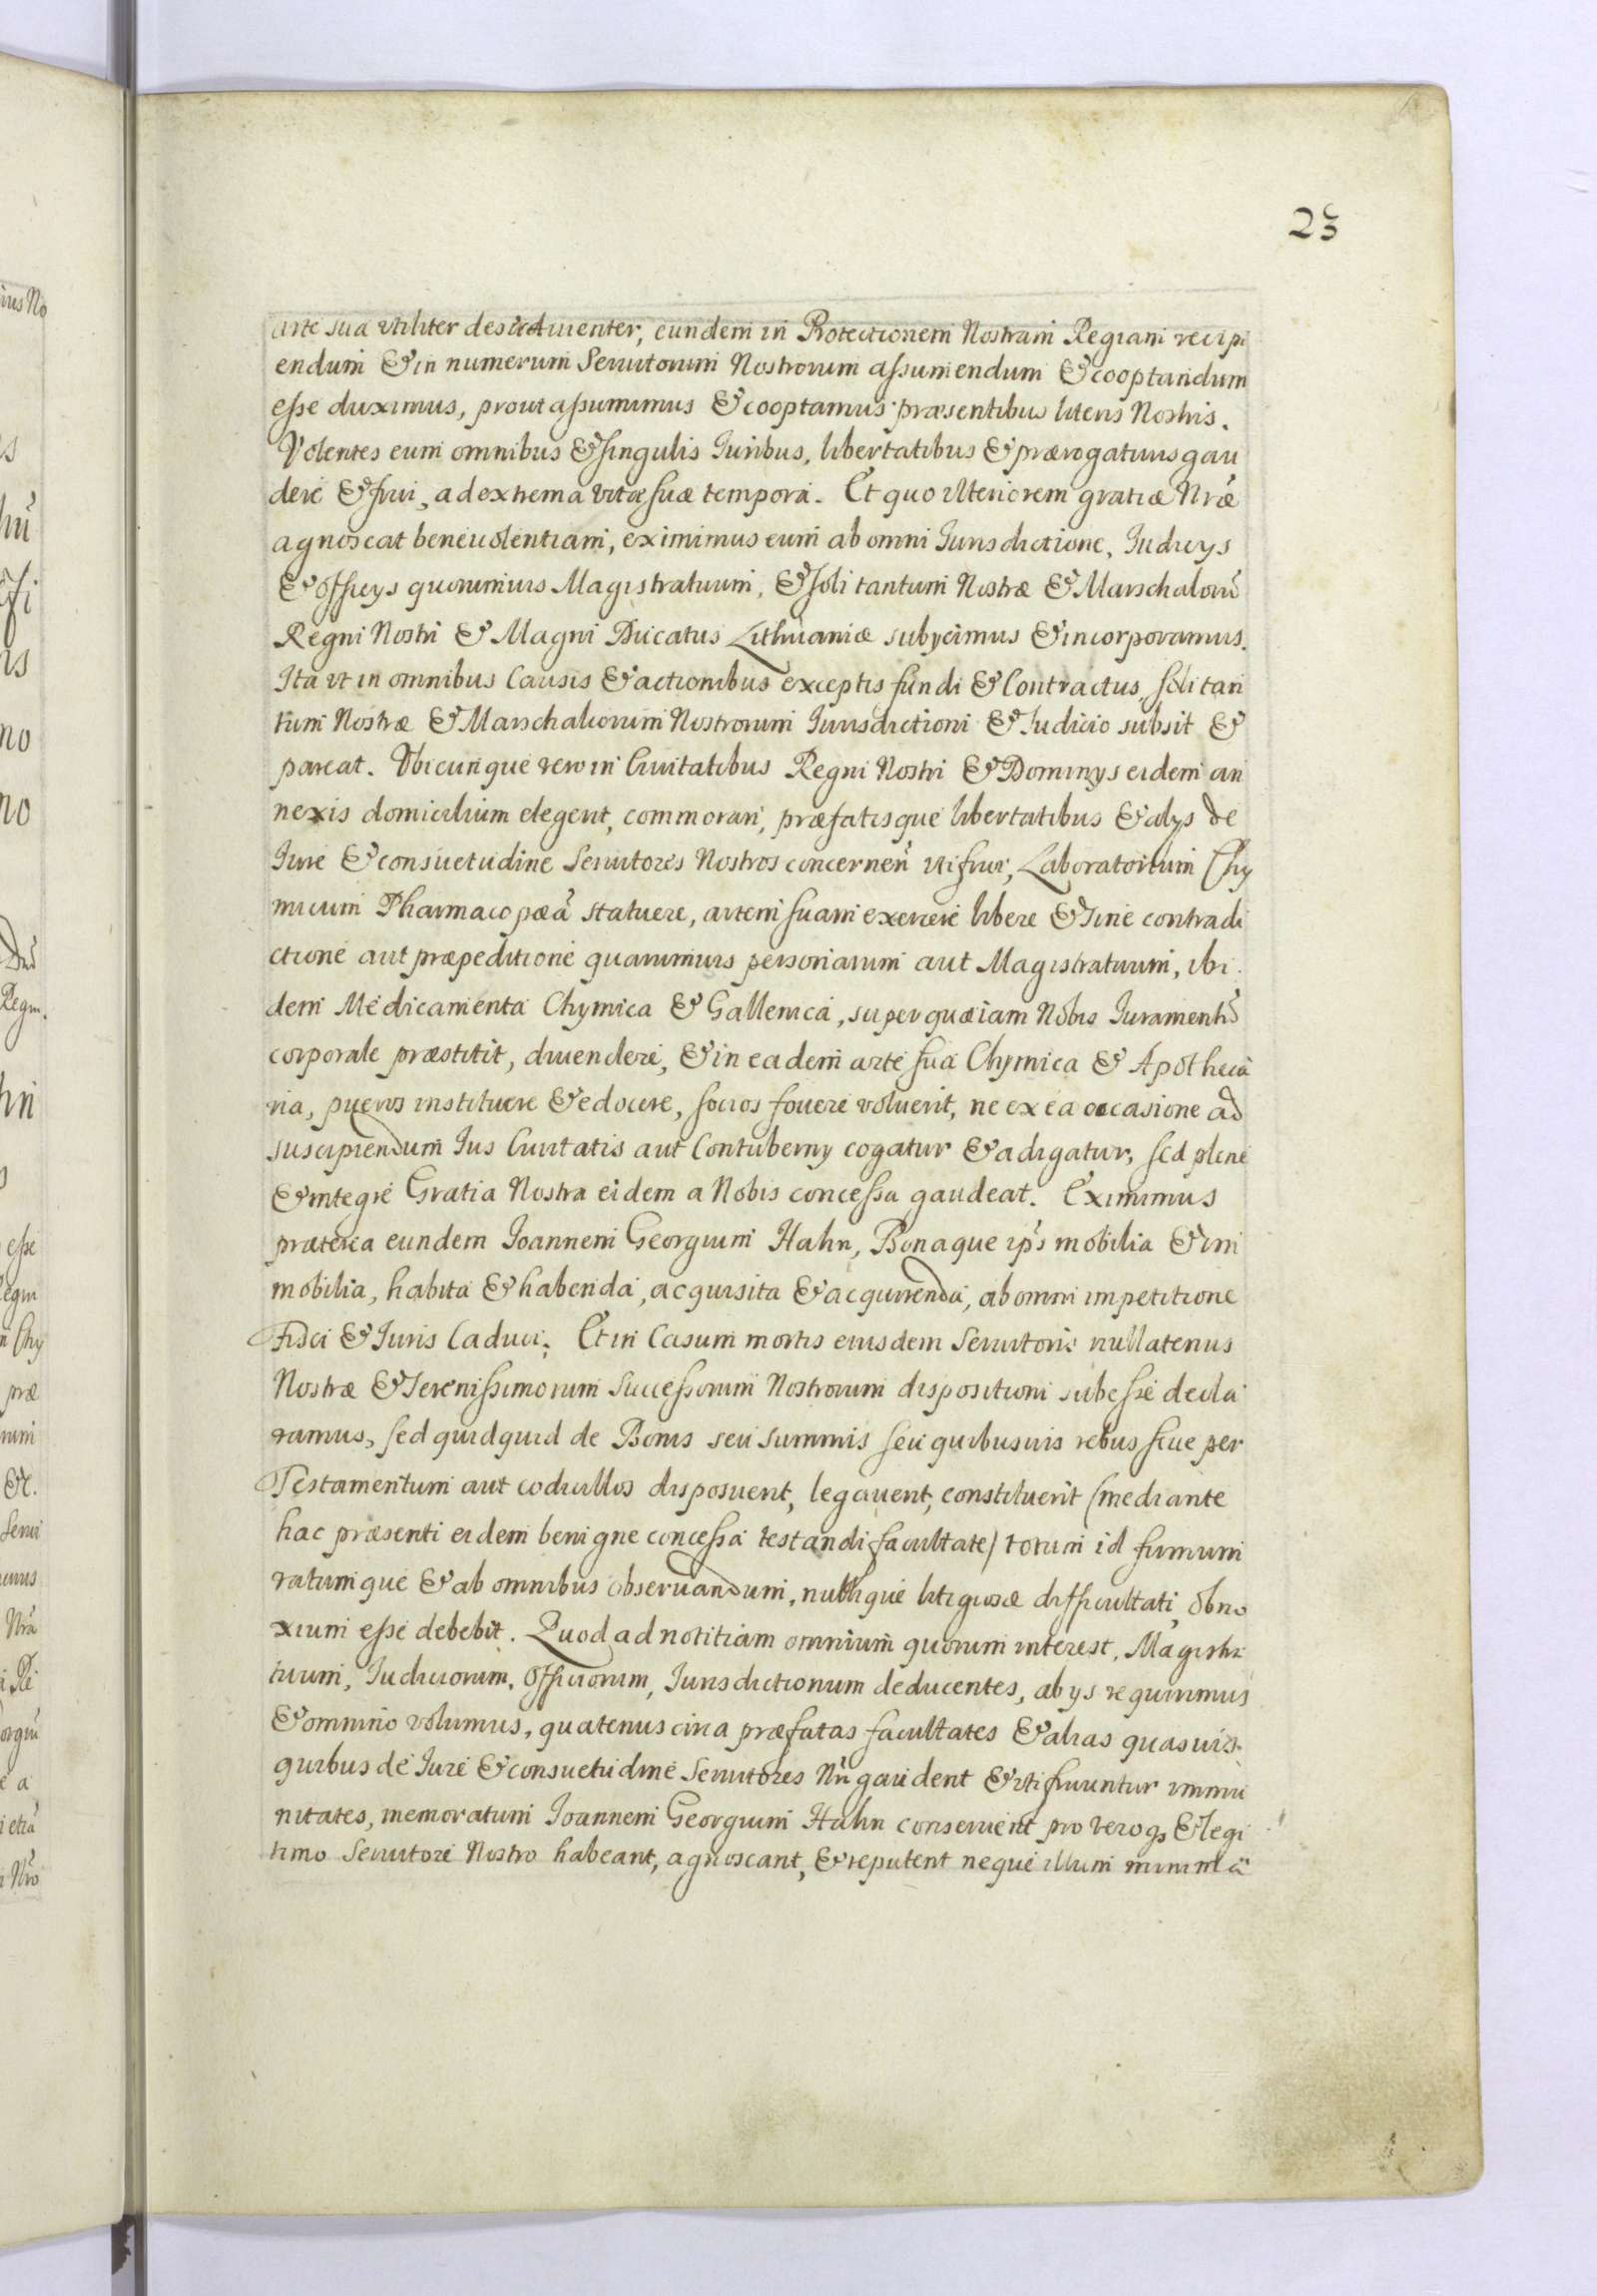 23
arte sua vtiliter deseruiuerter, eundem in Protectionem Nostram Regiam recipi
endum & in numerum Seruitorum Nostrorum assumendum & cooptandum
esse duximus, prout assumimus & cooptamus præsentibus literis Nostris.
Volentes eum omnibus & singulis Iuribus, libertatibus & prærogatiuis gau
dere & frui, ad extrema vitæ suæ tempora. Et quo vlteriorem gratiæ Nræ
agnoscat beneuolentiam, eximimus eum ab omni Iurisdictione, Iudicys
& officys quorumuis Magistratuum, & soli tantum Nostræ & Marschalorũ
Regni Nostri & Magni Ducatus Lithuaniæ subycimus & incorporamus.
Ita vt in omnibus Causis & actionibus exceptis fundi & Contractus, soli tan
tum Nostræ & Marschalcorum Nostrorum Iurisdictioni & Iudicio subsit &
pareat. Vbicunque vero in Ciuitatibus Regni Nostri & Dominys eidem an
nexis domicilium elegerit, commorari, præfatisque libertatibus & alys de
Iure & consuetudine Seruitores Nostros concernen̄ vti frui, Laboratorium Chy
micum Pharmacopæã statuere, artem suam exercere libere & sine contradi
ctione aut præpeditione quarumuis personarum aut Magistratuum, ibi
dem Medicamenta Chymica & Gallenica, super quæ iam Nobis Iuramentũ
corporale præstitit, diuendere, & in eadem arte sua Chymica & Apotheca
ria, pueros instituere & edocere, socios fouere voluerit, ne ex ea occasione ad
suscipiendum Ius Ciuitatis aut Contuberny cogatur & adigatur, sed plene
& integre Gratia Nostra eidem a Nobis concessa gaudeat. Eximimus
præterea eundem Ioannem Georgium Hahn, Bonaque ip̃s mobilia & im
mobilia, habita & habenda, acquisita & acquirenda, ab omni impetitione
Fisci & Iuris Caduci. Et in Casum mortis eiusdem Seruitoris nullatenus
Nostræ & Serenissimorum Successorum Nostrorum dispositioni subesse decla
ramus, sed quidquid de Bonis seu summis seu quibusuis rebus siue per
Testamentum aut codicillos disposuerit, legauerit, constituerit (mediante
hac præsenti eidem benigne concessa testandi facultate) totum id firmum
ratumque & ab omnibus obseruandum, nullique litigiosæ difficultati obno
xium esse debebit. Quod ad notitiam omnium quorum interest, Magistra
tuum, Iudiciorum, Officiorum, Iurisdictionum deducentes, ab ys requirimus
& omnino volumus, quatenus circa præfatas facultates & alias quasuis
quibus de Iure & consuetudine Seruitores Nr̃i gaudent & vti fruuntur immu
nitates, memoratum Ioannem Georgium Hahn conseruent pro veroq3 & legi
timo Seruitore Nostro habeant, agnoscant, & reputent neque illum minimã